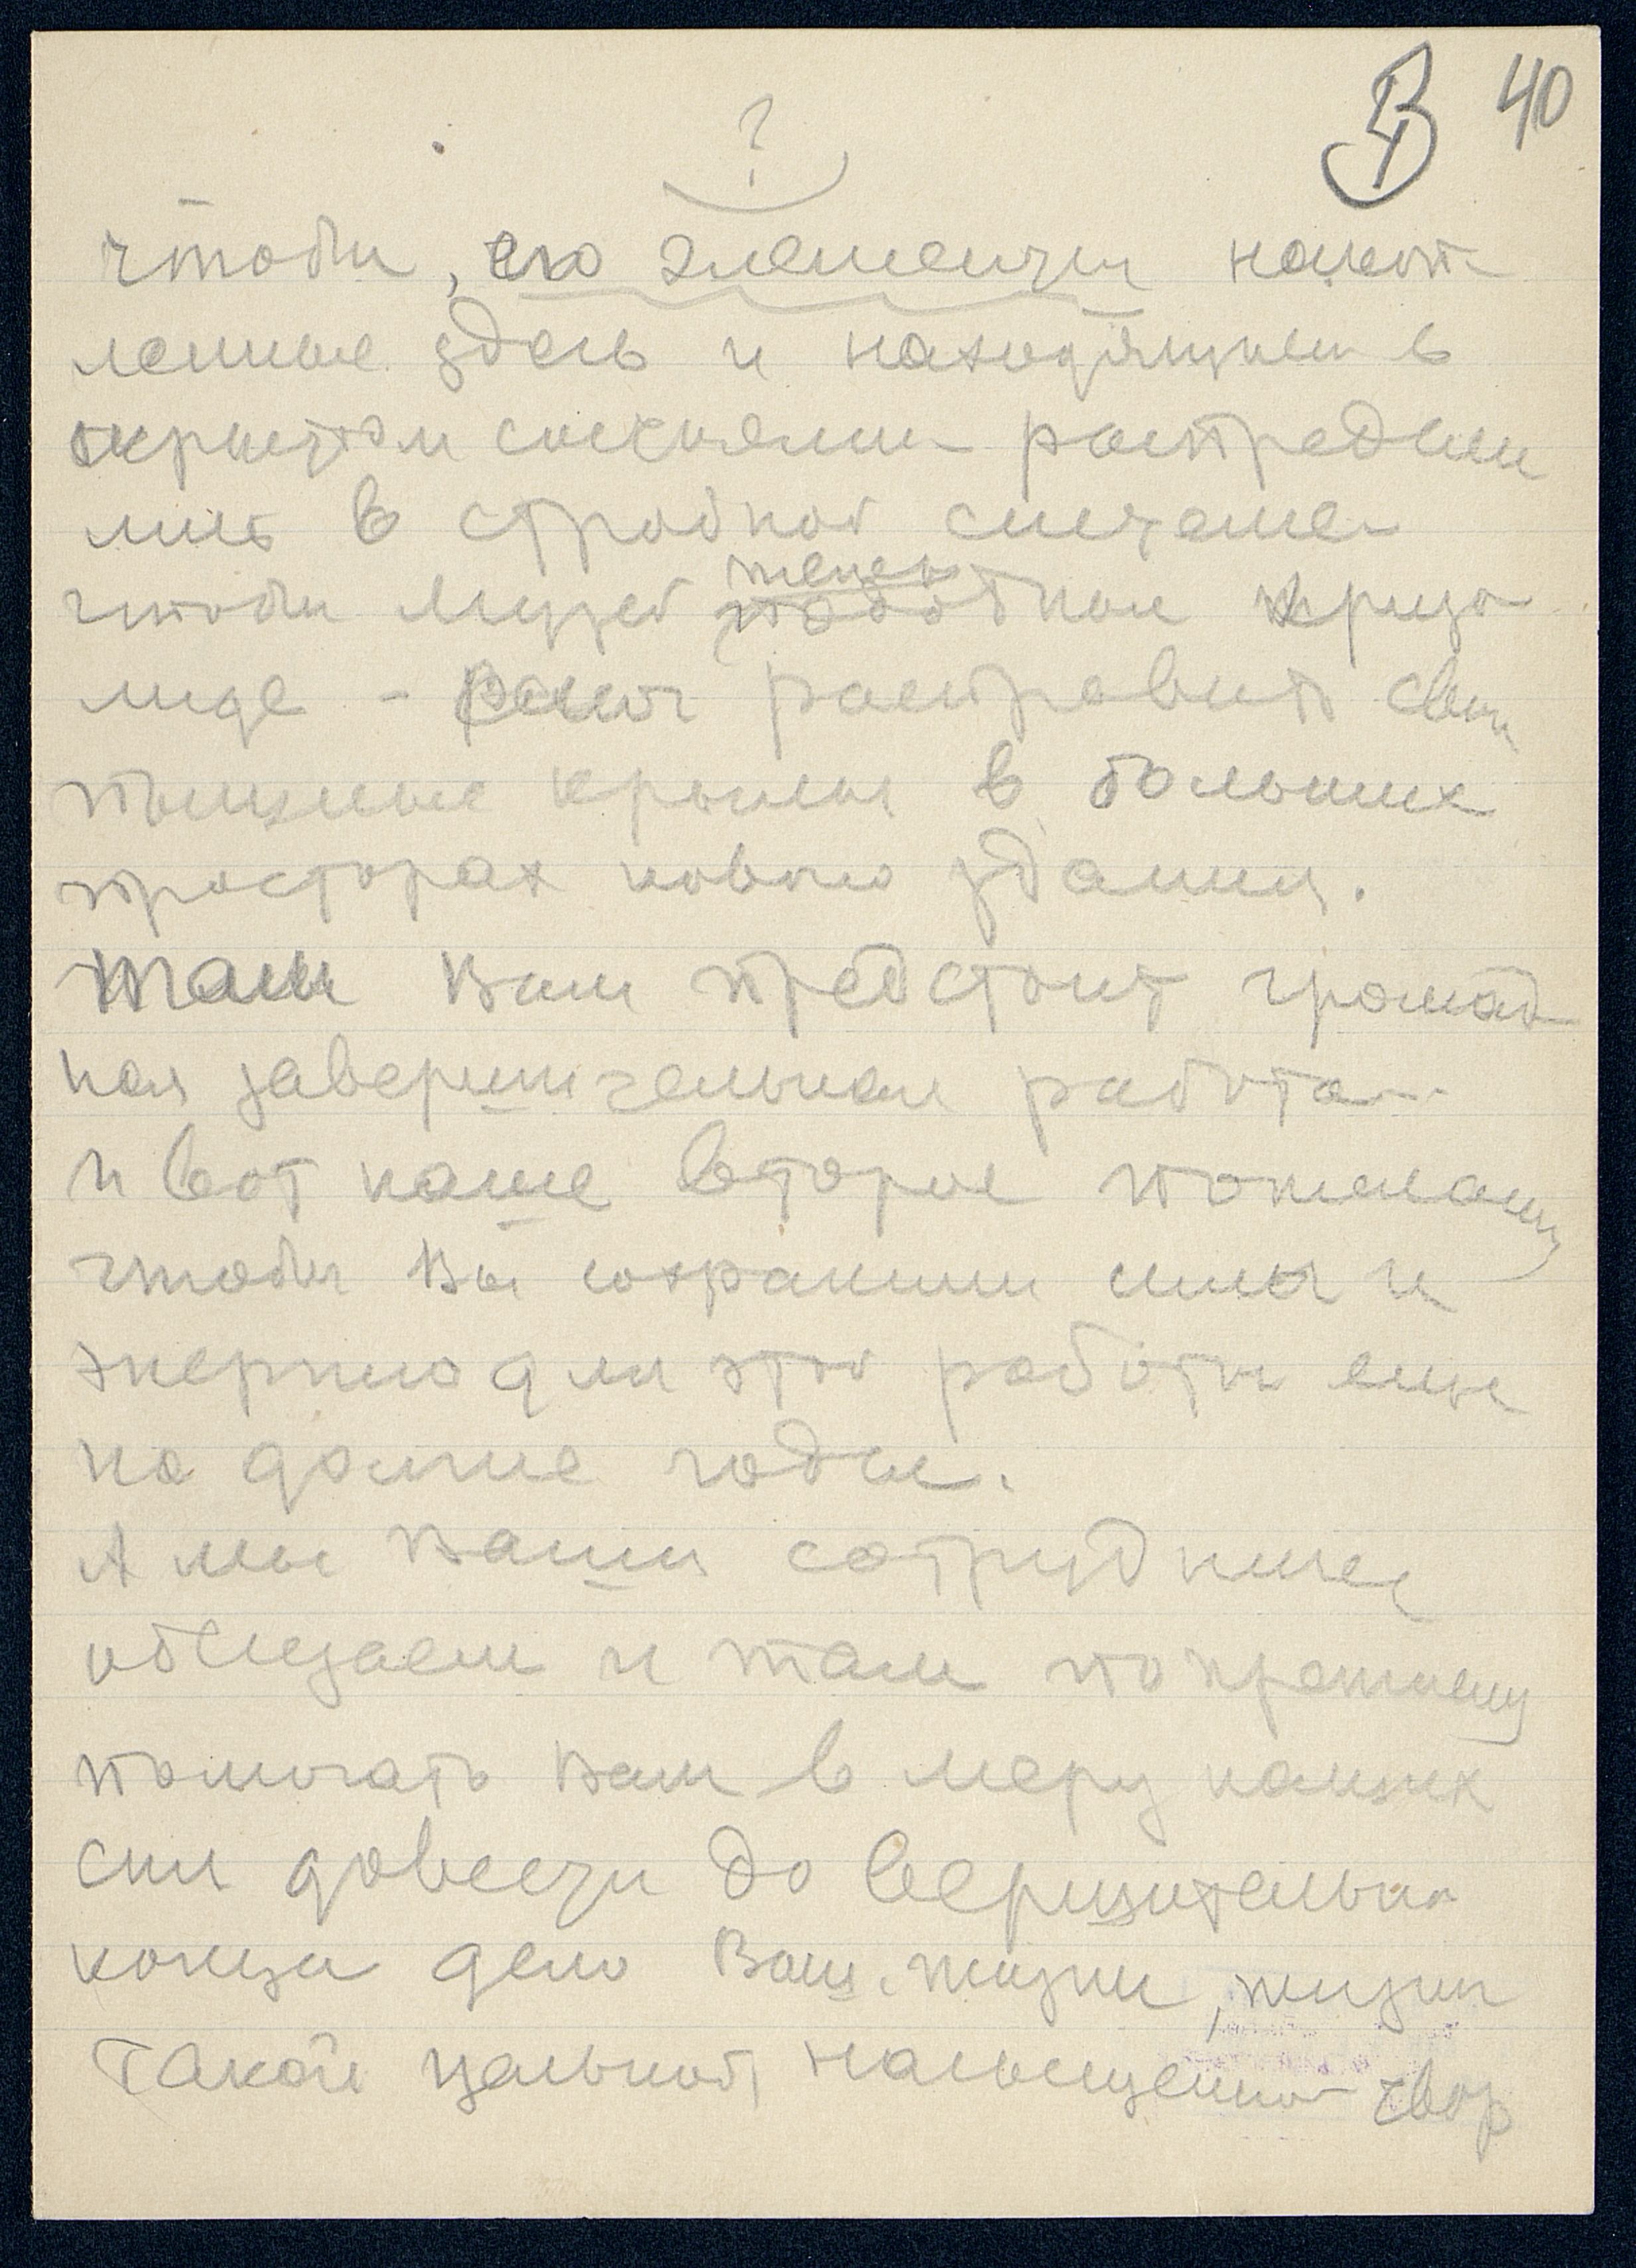 40
?
чтобы, его элементы накоп
ленные здесь и находящиеся в
скрытом состоянии распредели
лись в стройной системе
чтобы Музей теперь подобный хриза
лиде - расправит свои
пышные крылья в больших
просторах нового здания.
Там Вам предстоит громад
ная завершительная работа
и вот наше второе пожелание
чтобы Вы сохранили силы и
энергию для этой работы еще
на долгие годы.
А мы Ваши сотрудники
обещаем и там по прежнему
помогать Вам в меру наших
сил довести до вершительного
конца дело Ваш. жизни, жизни
такой цельной, насыщенной твор